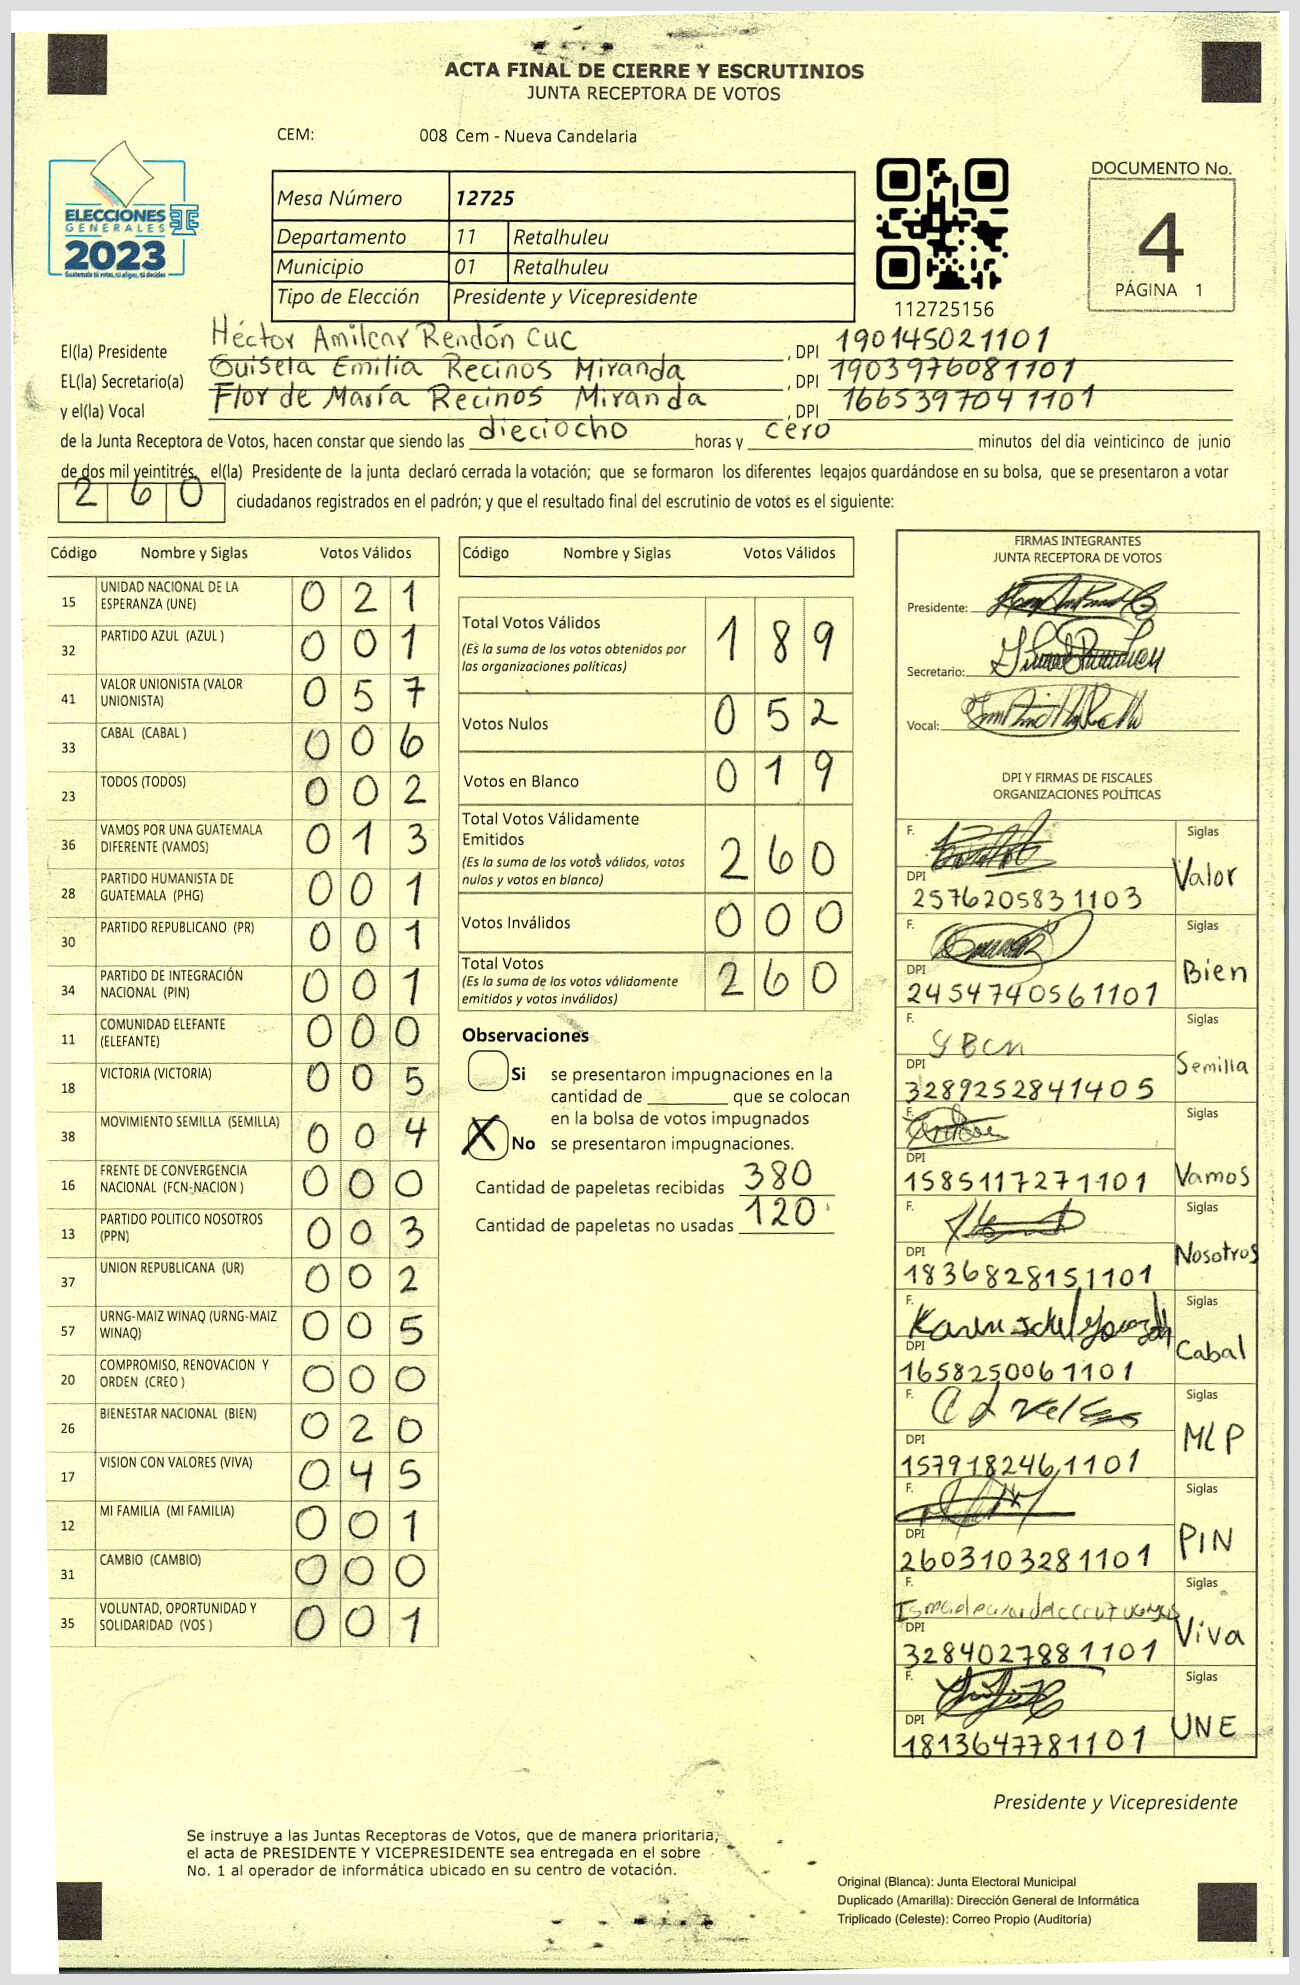 ACTA FINAL DE CIERRE Y ESCRUTINIOS
JUNTA RECEPTORA DE VOTOS
CEM: 008 Cem - Nueva Candelaria
ELECCIONES
GENERALES
2023
Guatemala tú votas, tú eliges, tú decides
Mesa Número 12725
Departamento 11 Retalhuleu
Municipio 01 Retalhuleu
Tipo de Elección Presidente y Vicepresidente
112725156
DOCUMENTO No.
4
PÁGINA 1
El(la) Presidente Héctor Amilcar Rendón Cuc, DPI 190145021101
EL(la) Secretario(a) Guisela Emilia Recinos Miranda, DPI 1903976081101
y el(la) Vocal Flor de María Recinos Miranda, DPI 1665397041101
de la Junta Receptora de Votos, hacen constar que siendo las dieciocho horas y cero minutos del día veinticinco de junio
de dos mil veintitrés, el(la) Presidente de la junta declaró cerrada la votación; que se formaron los diferentes legajos guardándose en su bolsa, que se presentaron a votar
260 ciudadanos registrados en el padrón; y que el resultado final del escrutinio de votos es el siguiente:
Código Nombre y Siglas Votos Válidos
15 UNIDAD NACIONAL DE LA ESPERANZA (UNE) 021
32 PARTIDO AZUL (AZUL ) 001
41 VALOR UNIONISTA (VALOR UNIONISTA) 057
33 CABAL (CABAL ) 006
23 TODOS (TODOS) 002
36 VAMOS POR UNA GUATEMALA DIFERENTE (VAMOS) 013
28 PARTIDO HUMANISTA DE GUATEMALA (PHG) 001
30 PARTIDO REPUBLICANO (PR) 001
34 PARTIDO DE INTEGRACIÓN NACIONAL (PIN) 001
11 COMUNIDAD ELEFANTE (ELEFANTE) 000
18 VICTORIA (VICTORIA) 005
38 MOVIMIENTO SEMILLA (SEMILLA) 004
16 FRENTE DE CONVERGENCIA NACIONAL (FCN-NACION ) 000
13 PARTIDO POLITICO NOSOTROS (PPN) 003
37 UNION REPUBLICANA (UR) 002
57 URNG-MAIZ WINAQ (URNG-MAIZ WINAQ) 005
20 COMPROMISO, RENOVACION Y ORDEN (CREO ) 000
26 BIENESTAR NACIONAL (BIEN) 020
17 VISION CON VALORES (VIVA) 045
12 MI FAMILIA (MI FAMILIA) 001
31 CAMBIO (CAMBIO) 000
35 VOLUNTAD, OPORTUNIDAD Y SOLIDARIDAD (VOS ) 001
Código Nombre y Siglas Votos Válidos
Total Votos Válidos 189
(Es la suma de los votos obtenidos por
las organizaciones políticas)
Votos Nulos 052
Votos en Blanco 019
Total Votos Válidamente
Emitidos 260
(Es la suma de los votos válidos, votos
nulos y votos en blanco)
Votos Inválidos 000
Total Votos 260
(Es la suma de los votos válidamente
emitidos y votos inválidos)
Observaciones
Si se presentaron impugnaciones en la
cantidad de ________ que se colocan
en la bolsa de votos impugnados
X No se presentaron impugnaciones.
Cantidad de papeletas recibidas 380
Cantidad de papeletas no usadas 120
FIRMAS INTEGRANTES
JUNTA RECEPTORA DE VOTOS
Presidente:
Secretario:
Vocal:
DPI Y FIRMAS DE FISCALES
ORGANIZACIONES POLÍTICAS
F. Siglas
DPI Valor
2576205831103
F. Siglas
DPI Bien
2454740561101
F. Siglas
DPI Semilla
3289252841405
F. Siglas
DPI Vamos
1585117271101
F. Siglas
DPI Nosotros
1836828151101
F. Siglas
DPI Cabal
1658250061101
F. Siglas
DPI MLP
1579182461101
F. Siglas
DPI PIN
2603103281101
F. Siglas
DPI Viva
3284027881101
F. Siglas
DPI UNE
1813647781101
Presidente y Vicepresidente
Se instruye a las Juntas Receptoras de Votos, que de manera prioritaria,
el acta de PRESIDENTE Y VICEPRESIDENTE sea entregada en el sobre
No. 1 al operador de informática ubicado en su centro de votación.
Original (Blanca): Junta Electoral Municipal
Duplicado (Amarilla): Dirección General de Informática
Triplicado (Celeste): Correo Propio (Auditoría)